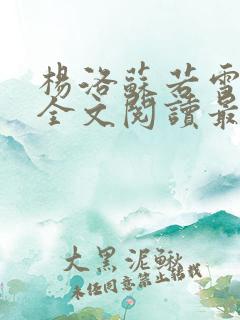 楊洛蘇若雪
全文閱讀最
大黑泥鰍
未经同意禁止转载